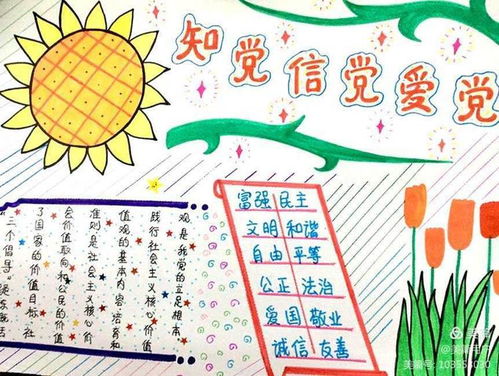 知党信党爱党
富强 民主
文明 和谐
自由 平等
公正 法治
爱国 敬业
诚信 友善
观是我党的立足根本
值观的基本内容培育和
践行社会主义核心价值
准则是社会主义核心价
会价值取向和公民的价值
了国家的价值目标 社
三个倡导"
美篇号: 103553030